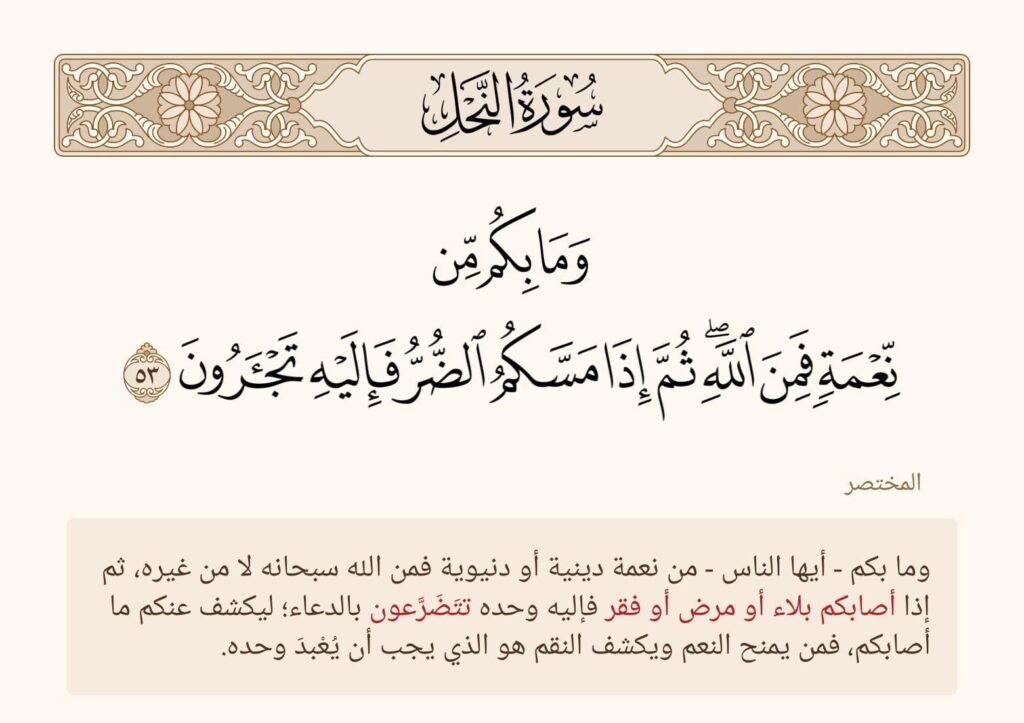 سُورَةُ النَّحْلِ
وَمَا بِكُم مِّن
نِّعْمَةٍ فَمِنَ ٱللَّهِۖ ثُمَّ إِذَا مَسَّكُمُ ٱلضُّرُّ فَإِلَيْهِ تَجْـَٔرُونَ ٥٣
المختصر
وما بكم - أيها الناس - من نعمة دينية أو دنيوية فمن الله سبحانه لا من غيره، ثم
إذا أصابكم بلاء أو مرض أو فقر فإليه وحده تتَضَرَّعون بالدعاء؛ ليكشف عنكم ما
أصابكم، فمن يمنح النعم ويكشف النقم هو الذي يجب أن يُعْبدَ وحده.